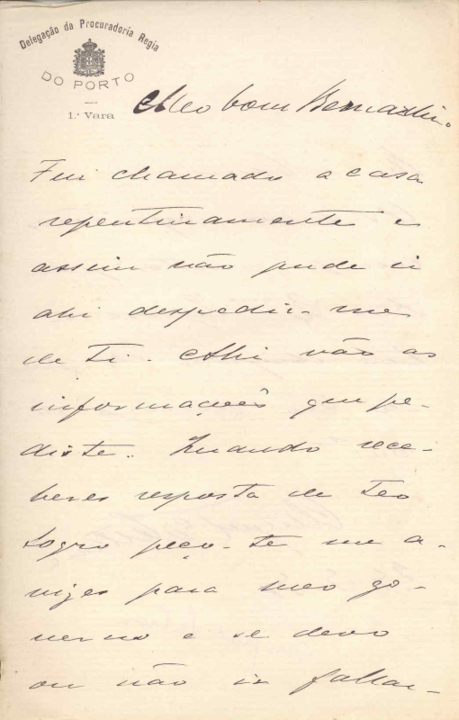 Delegação da Procuradoria Regia
DO PORTO
1.ª Vara
Meo bom Bernardin.
Fui chamado a casa
repentinamente e
assim não pude ir
ahi despedir-me
de Ti. Ahi vão as
informações que pe-
diste. Quando rece-
beres resposta de teo
sogro peço-te me a-
vizes para meo go-
verno e se devo
ou não ir fallar-